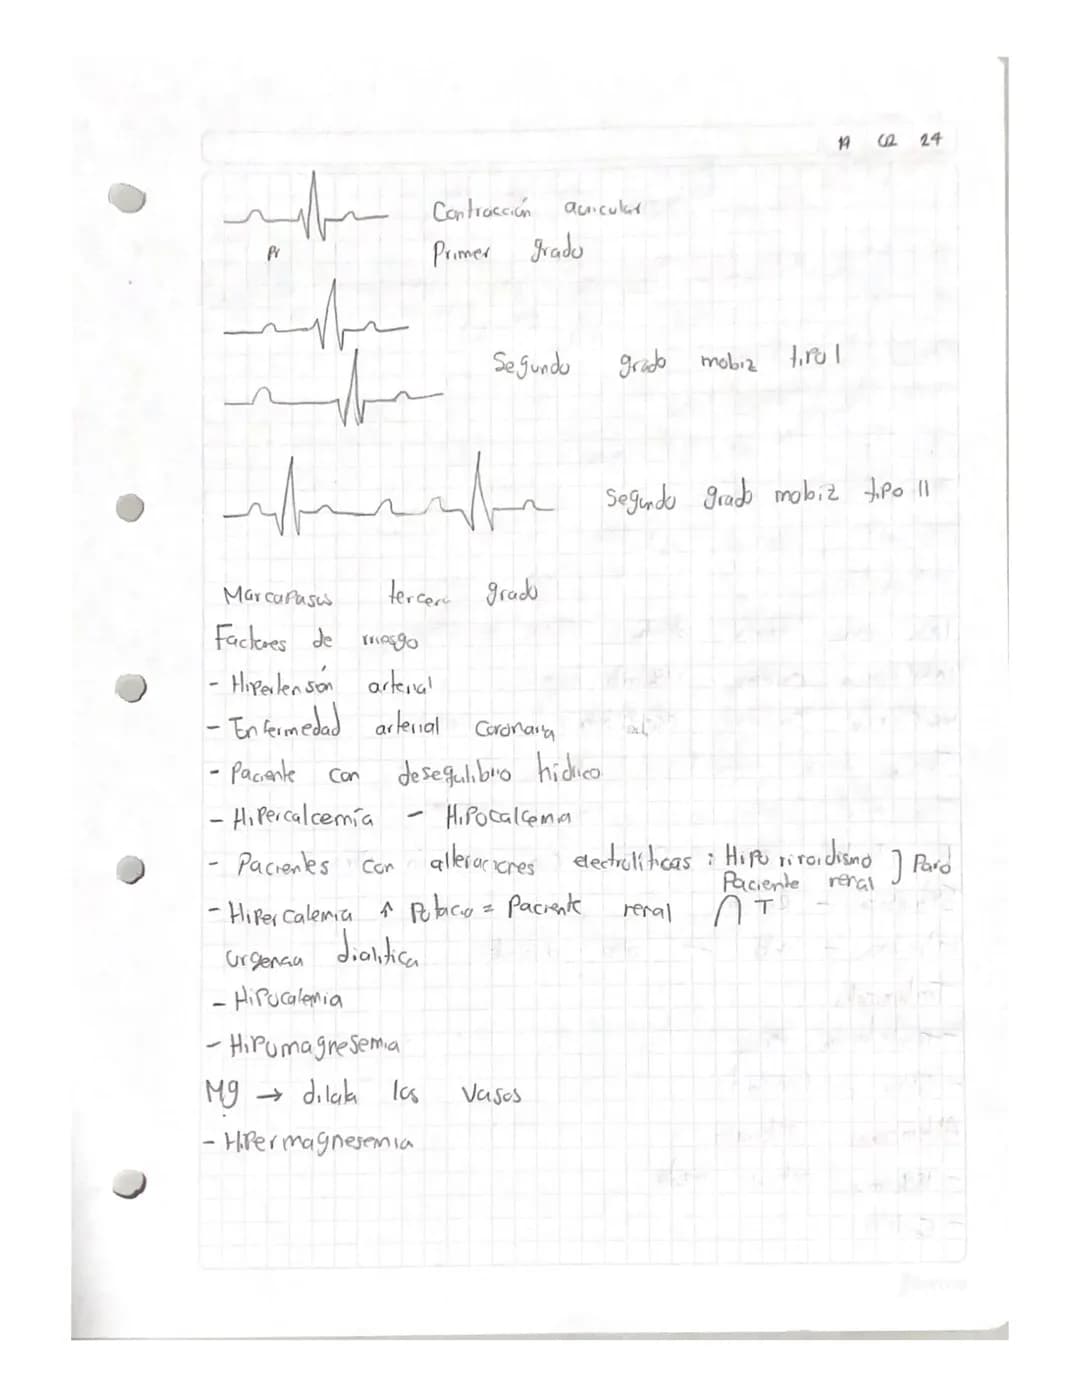 19 02 24
Contracción auricular
Pr
Primer grado
Segundo grado mobiz tipo I
Segundo grado mobiz tipo II
Marcapasos tercero grado
Factores de riesgo
- Hipertensón arterial
- Enfermedad arterial Coronaria
- Paciente con desegulibrio hídrico
- Hipercalcemía - Hipocalcemia
- Pacientes con alteraciones electrolíticas : Hipo tiroidismo ] Paro
Paciente renal
- Hipercalemia ↑ Potacio = Paciente renal ∩ T
urgencia dialítica
- Hipocalemia
- Hipomagnesemia
Mg → dilata los vasos
- Hipermagnesemia